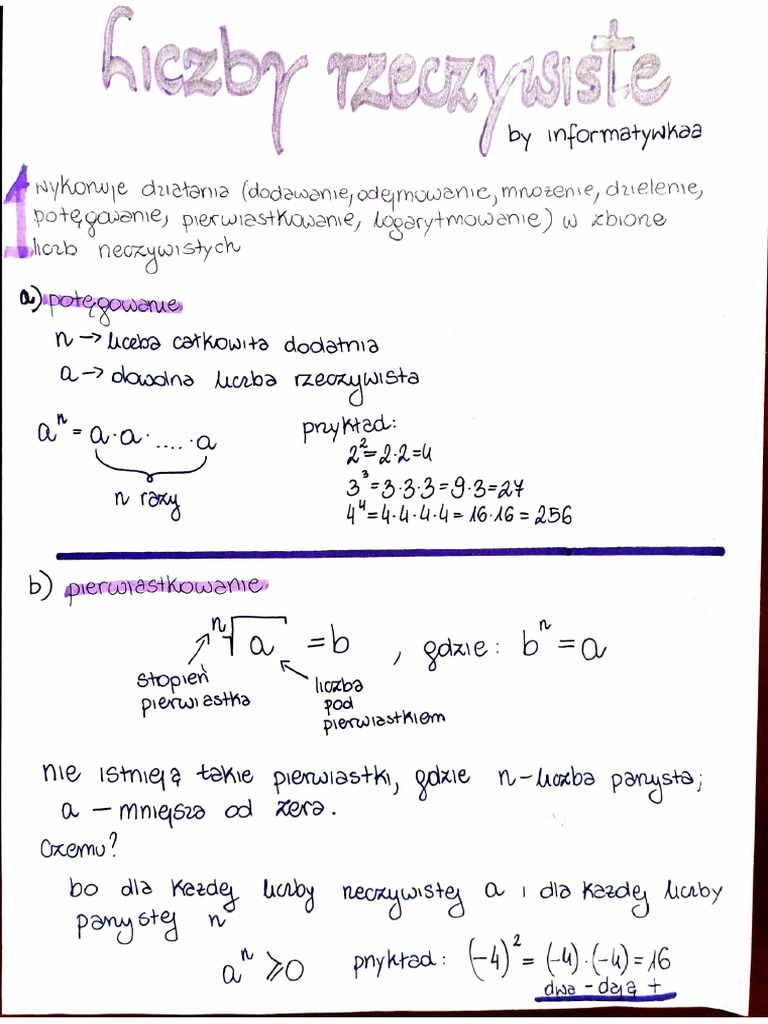 Liczby rzeczywiste
by informatywkaa
1 wykonuje działania (dodawanie, odejmowanie, mnożenie, dzielenie,
potęgowanie, pierwiastkowanie, logarytmowanie) w zbiorze
liczb rzeczywistych
a) potęgowanie
n → liczba całkowita dodatnia
a → dowolna liczba rzeczywista
aⁿ = a·a·....·a
n razy
przykład:
2²=2·2=4
3³=3·3·3=9·3=27
4⁴=4·4·4·4=16·16=256
b) pierwiastkowanie
ⁿ√a = b , gdzie: bⁿ = a
stopień
pierwiastka
liczba
pod
pierwiastkiem
nie istnieją takie pierwiastki, gdzie n-liczba parzysta;
a – mniejsza od zera.
Czemu?
bo dla każdej liczby rzeczywistej a i dla każdej liczby
parzystej n
aⁿ ⩾ 0 przykład: (-4)² = (-4)·(-4)=16
dwa - dają +